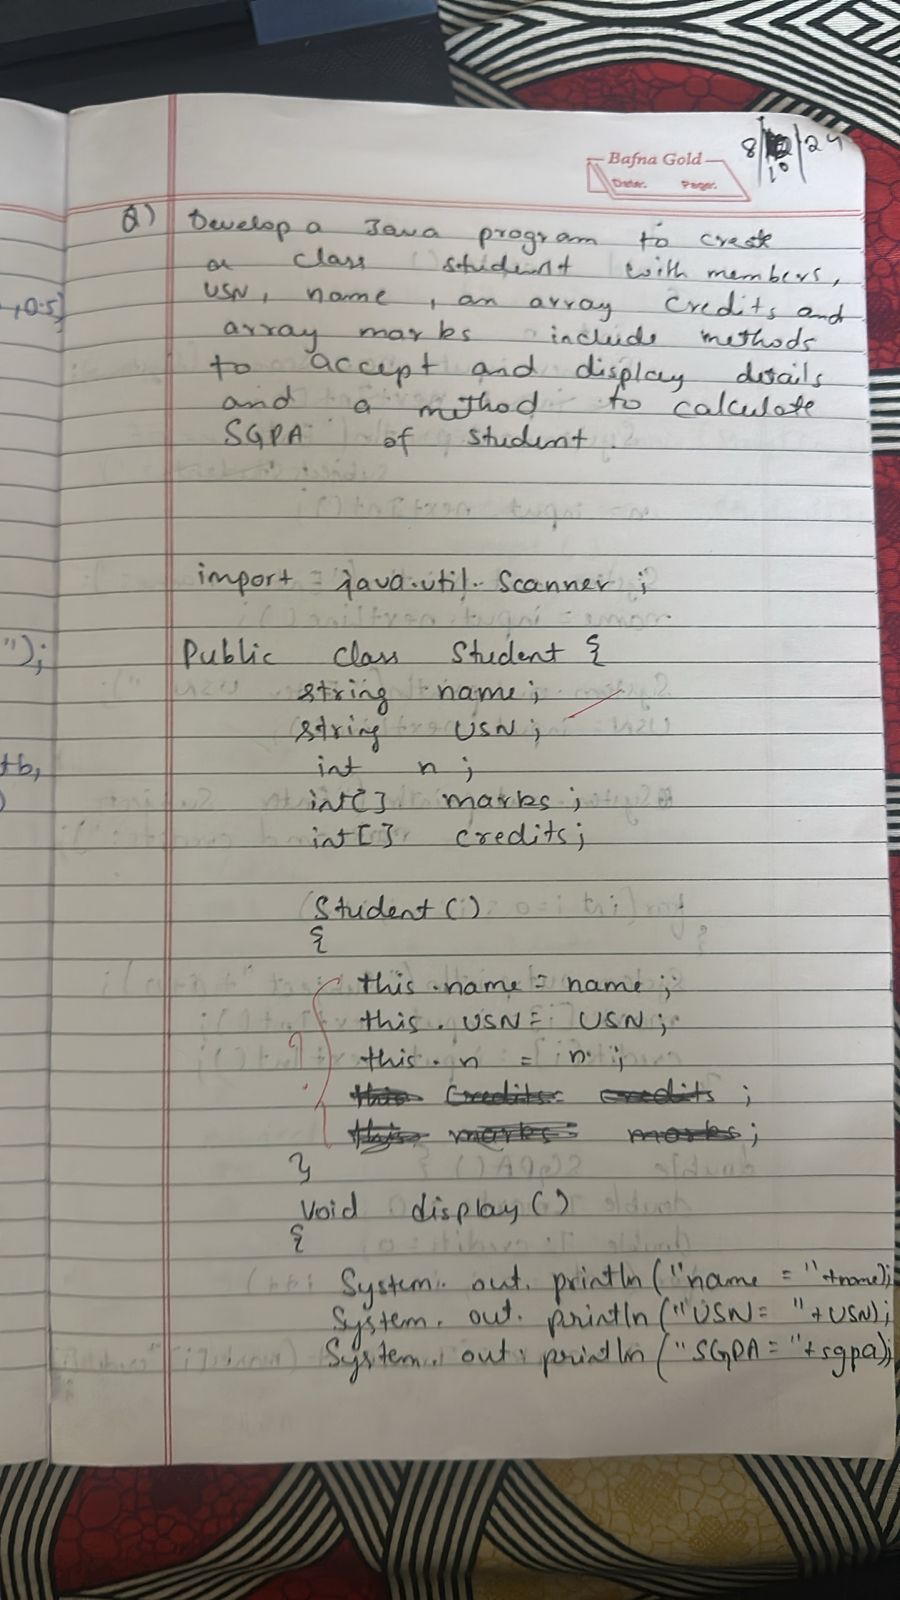 8/10/24
Bafna Gold
Date: Page:
Q) Develop a Java program to create
a class student with members,
USN, name, an array credits and
array marks include methods
to accept and display details
and a method to calculate
SGPA of student.
import = java.util. Scanner ;
Public class Student {
string name ;
string USN ;
int n ;
int[] marks ;
int[] credits;
Student ()
{
this.name = name ;
this. USN = USN ;
this. n = n ;
this credits = credits ;
this marks = marks ;
}
void display ()
{
System. out. println ("name = "+name);
System. out. println ("USN= "+USN);
System. out. println ("SGPA = "+sgpa);
,0.5]
");
+b,
)